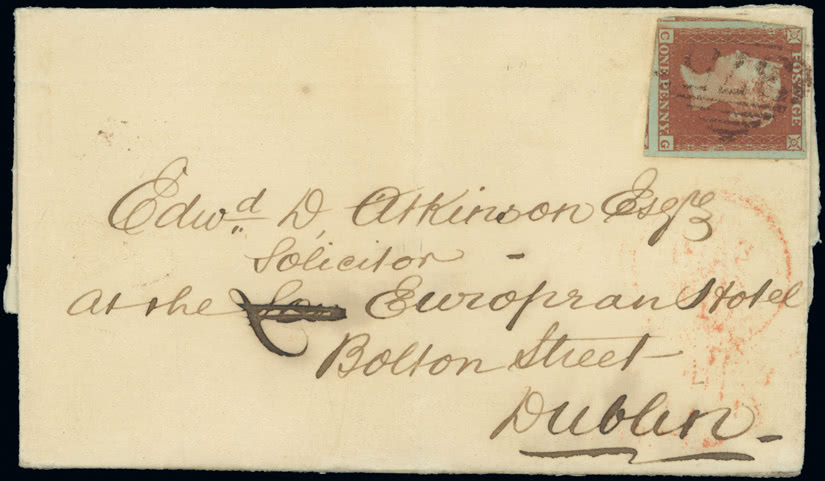 POSTAGE
ONE PENNY
C G
Edwd. D. Atkinson Esqre
Solicitor
at the European Hotel
Bolton Street
Dublin